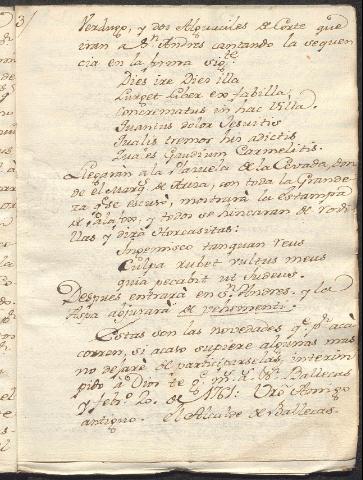 3
Verdugo, y dos Alguaciles de Corte que
iran a Sn. Andres cantando la sequen
cia en la forma sigte.
Dies ire Dies illa
Surget liber ex fabilla,
concrematus in hac Villa.
Quantus dolor Jesuitis
Qualis tremor his adictis
Gaudium Carmelitis.
Llegaràn a la Plazuela de la Cevada, don
de el Marqs. de con toda la Grande
za qe. se escusò, mostrarà la estampa
de y todos se hincaran de rodi
llas y dirà Horcasitas:
Ingemisco tanquan reus
Culpa rubet vultus meus
quia pecabit ut Judeus.
Despues entrarà en Sn. Andres, y la
Aspa adjurarà de vehementi.
Estas son las novedades qe. pr. acà
corren, si acaso supiere algunas mas
no dejarè de participarselas, interim
pido à Dios te ge. ms. as. Ballecas
y febo. 20. de 1761. Vro. Amigo
antiguo. el Alcalde de Ballecas.